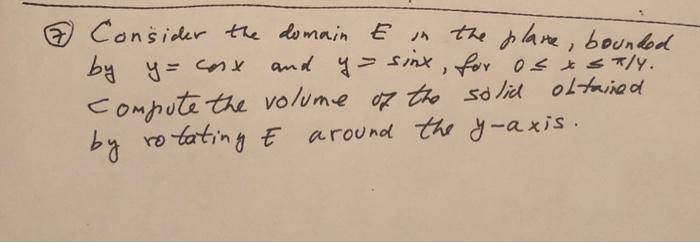 ⑦ Consider the domain E in the plane, bounded
by y = cos x and y = sinx, for 0 ≤ x ≤ π/4.
Compute the volume of the solid obtained
by rotating E around the y-axis.